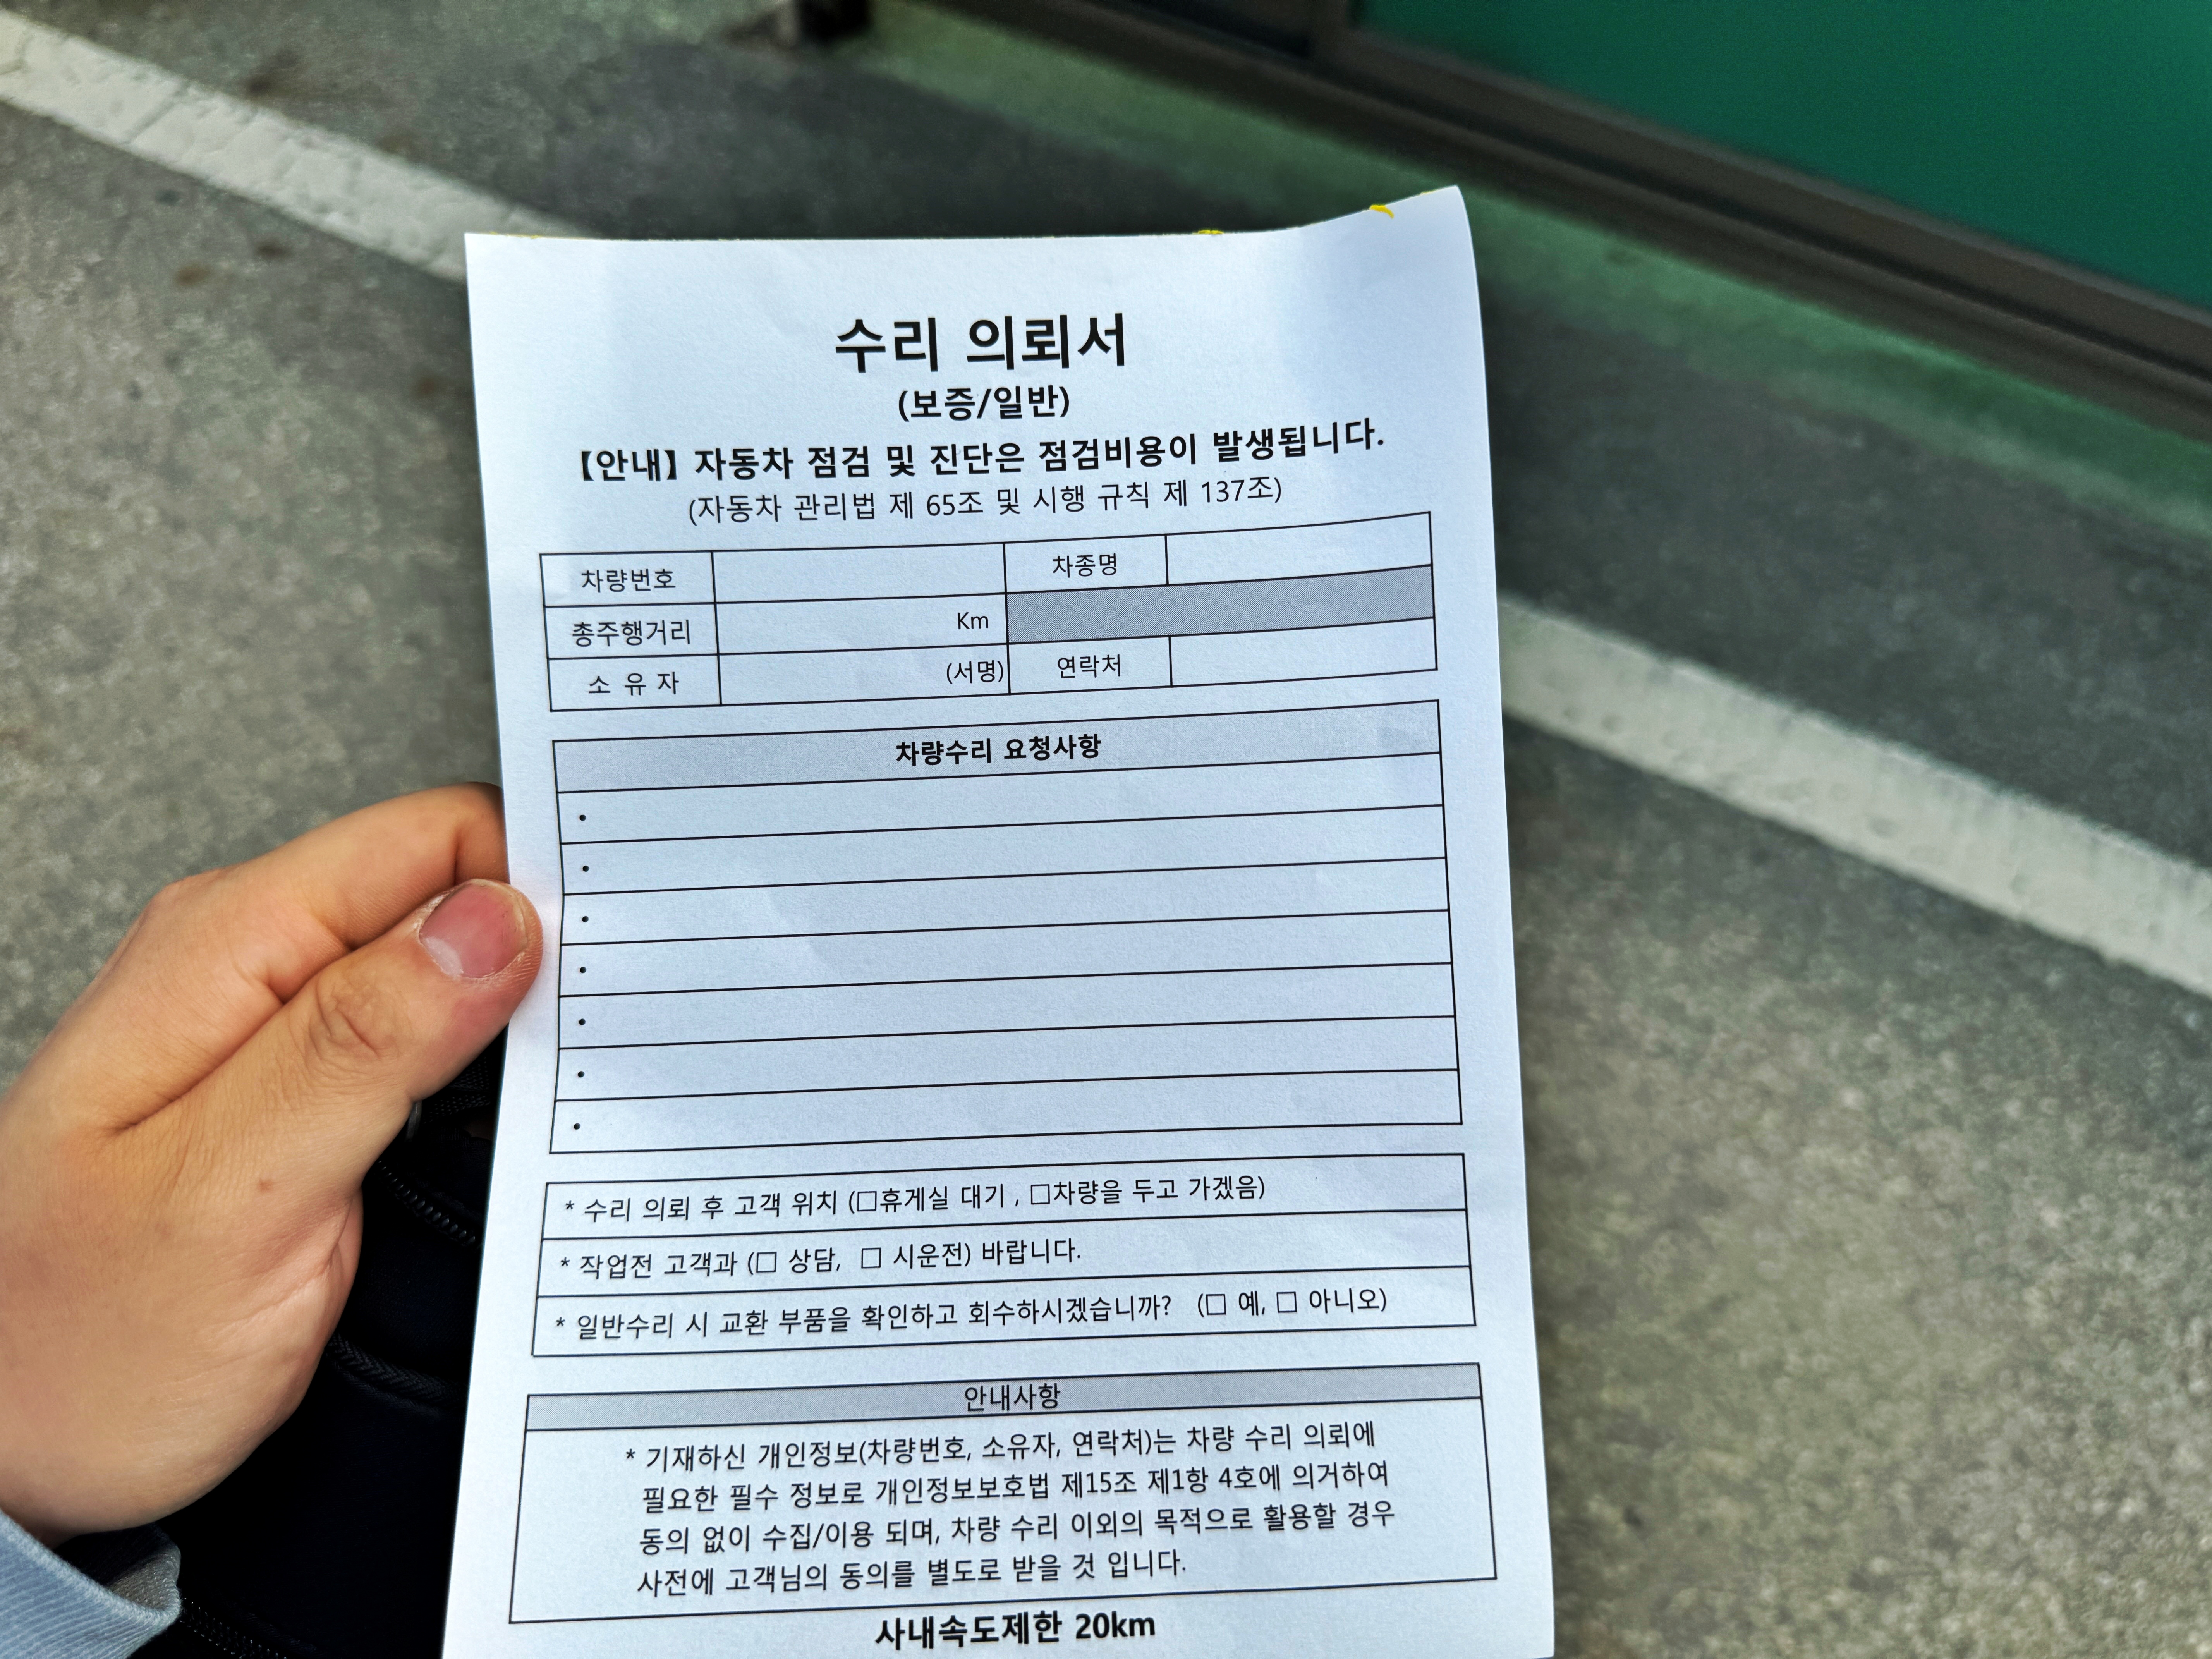 수리 의뢰서
(보증/일반)
【안내】 자동차 점검 및 진단은 점검비용이 발생됩니다.
(자동차 관리법 제 65조 및 시행 규칙 제 137조)
차량번호 차종명
총주행거리 Km
소 유 자 (서명) 연락처
차량수리 요청사항
•
•
•
•
•
•
•
* 수리 의뢰 후 고객 위치 (□휴게실 대기 , □차량을 두고 가겠음)
* 작업전 고객과 (□ 상담, □ 시운전) 바랍니다.
* 일반수리 시 교환 부품을 확인하고 회수하시겠습니까? (□ 예, □ 아니오)
안내사항
* 기재하신 개인정보(차량번호, 소유자, 연락처)는 차량 수리 의뢰에
필요한 필수 정보로 개인정보보호법 제15조 제1항 4호에 의거하여
동의 없이 수집/이용 되며, 차량 수리 이외의 목적으로 활용할 경우
사전에 고객님의 동의를 별도로 받을 것 입니다.
사내속도제한 20km